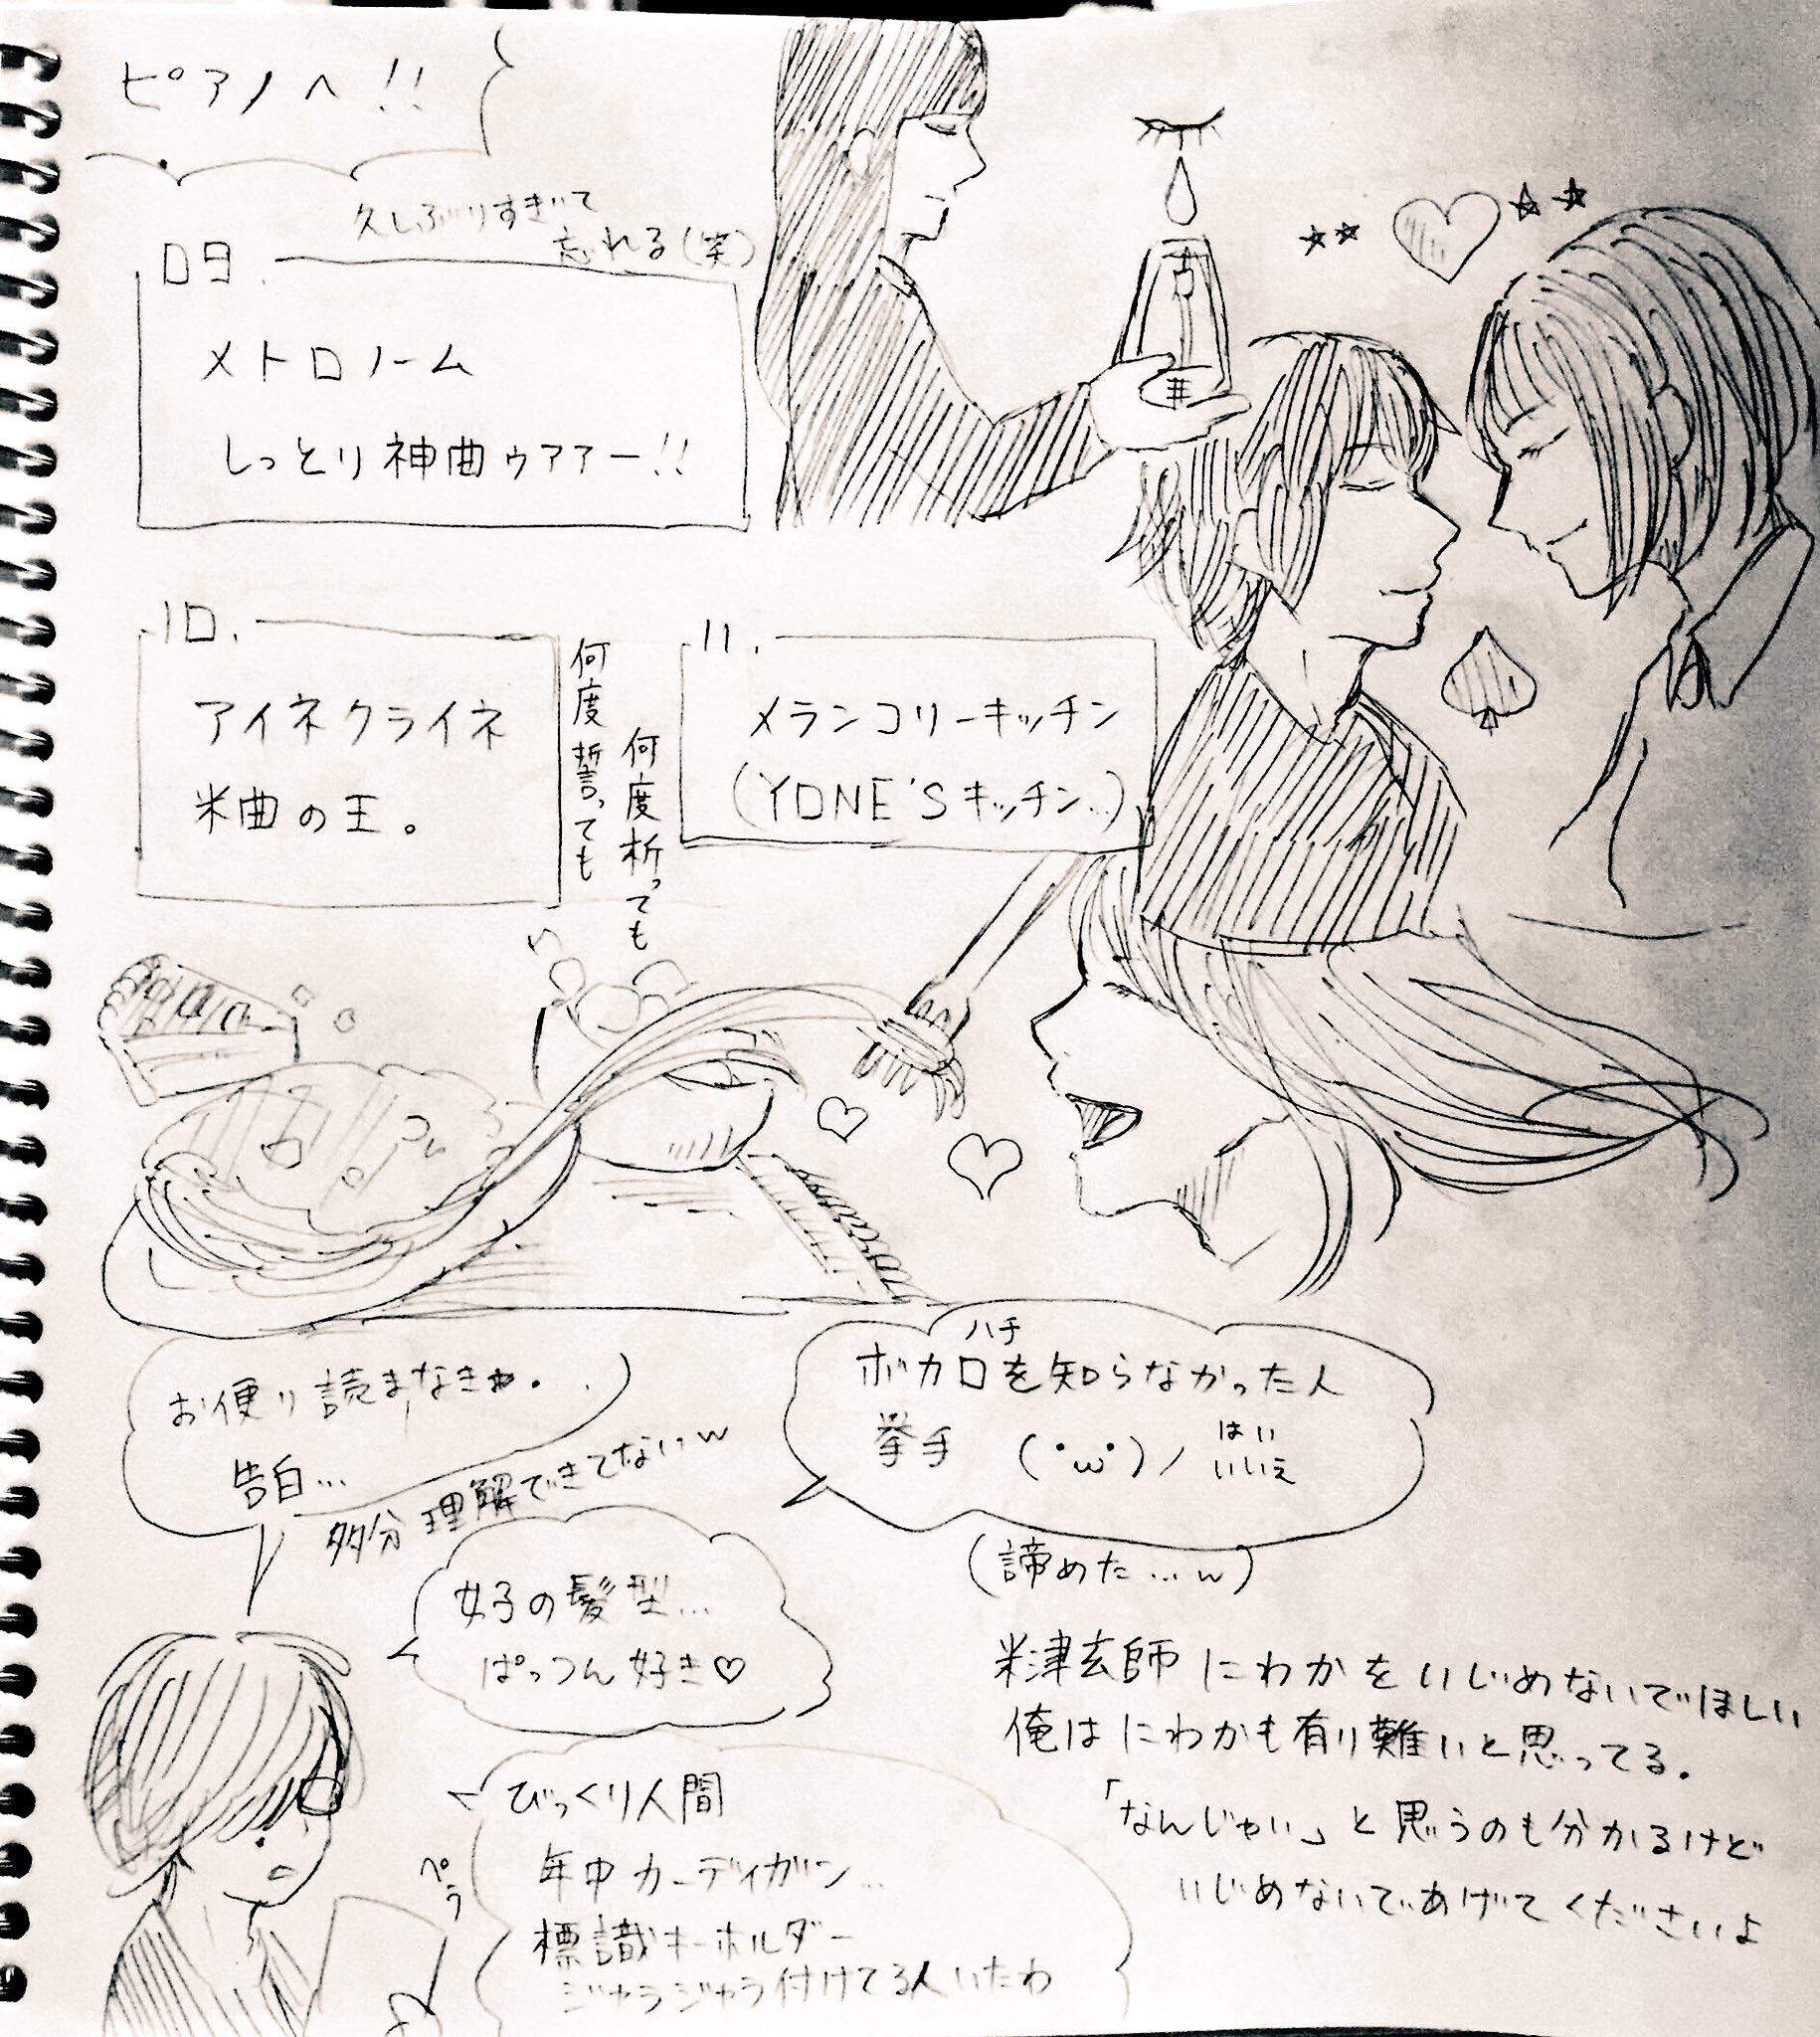 ピアノへ!!
久しぶりすぎて
忘れる(笑)
09.
メトロノーム
しっとり神曲ゥアアー!!
10.
アイネクライネ
米曲の王。
何度誓っても
何度祈っても
11.
メランコリーキッチン
(YONE'Sキッチン..)
お便り読まなきゃ..
告白...
多分理解できてないw
ハチ
ボカロを知らなかった人
挙手 (・ω・)/ はい
いいえ
(諦めた...w)
女子の髪型...
ぱっつん好き♡
米津玄師にわかをいじめないでほしい
俺はにわかも有り難いと思ってる。
「なんじゃい」と思うのも分かるけど
いじめないであげてくださいよ
びっくり人間
年中カーディガン...
標識キーホルダー
ジャラジャラ付けてる人いたわ
ぺら